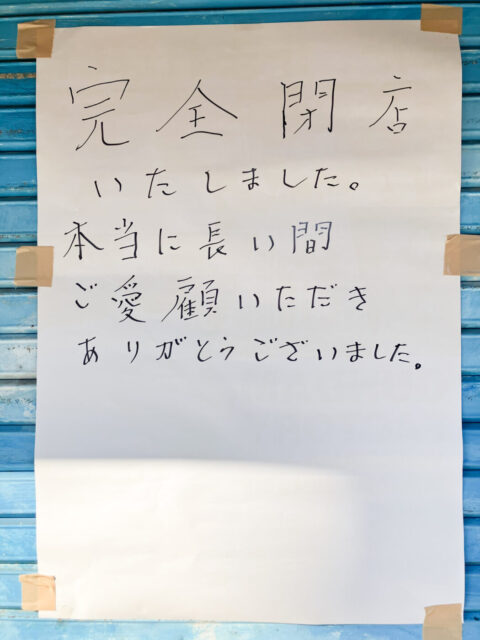 完全閉店
いたしました。
本当に長い間
ご愛顧いただき
ありがとうございました。